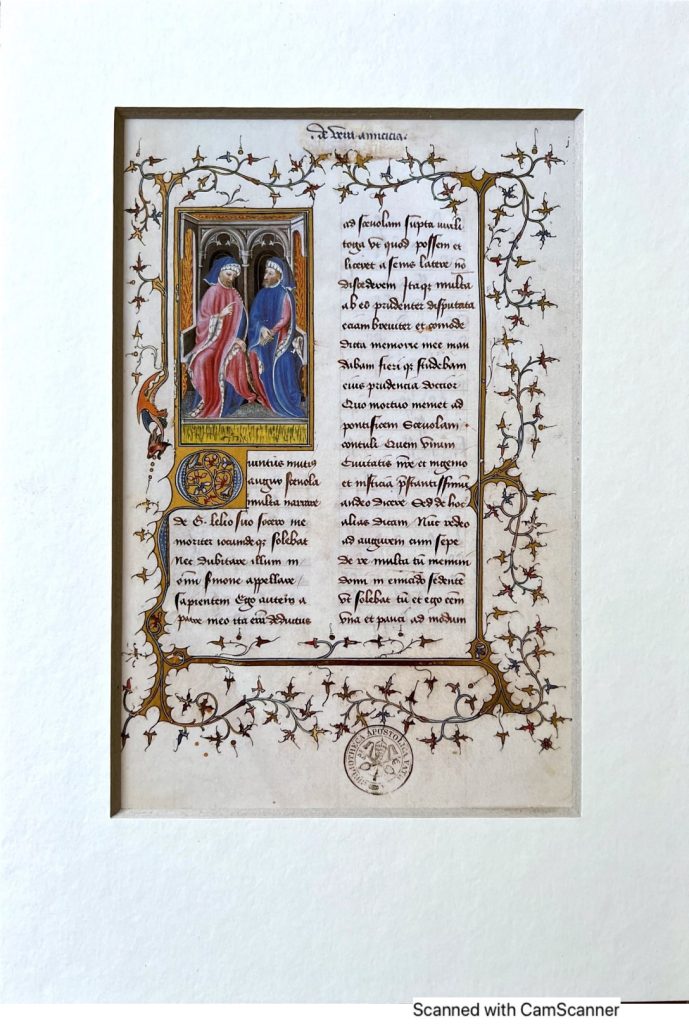 de vera amicicia
Quintus mutius
augur scevola
multa narrare
de G. lelio suo socero me
moriter iocundeqȝ solebat
Nec dubitare illum in
om̄i s̄mone appellare
sapientem Ego autem a
patre meo ita erā deductus
ad scevolam sūpta virili
toga vt quod possem et
liceret a senis latere nō
discederem Itaqȝ multa
ab eo prudenter disputata
eciam breviter et cōmode
dicta memorie mee man
dabam fieri qȝ studebam
eius prudencia doctior
Quo mortuo memet ad
pontificem Scevolam
contuli Quem vnum
Civitatis nr̄e et ingenio
et iusticia p̄stantissimū
audeo dicere Sed de hoc
alias dicam Nūc redeo
ad augurem cum sepe
de re multa tū memini
domi in emiciclo sedentē
vt solebat tū et ego eēm
vna et pauci admodum
BIBLIOTHECA APOSTOLICA VATICANA
Scanned with CamScanner